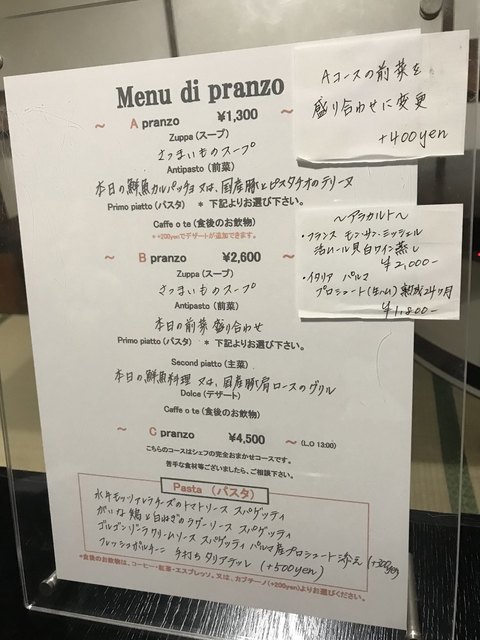 Menu di pranzo
～ A pranzo ¥1,300 ～
Zuppa (スープ)
さつまいものスープ
Antipasto (前菜)
本日の鮮魚カルパッチョ 又は、国産豚とピスタチオのテリーヌ
Primo piatto (パスタ) * 下記よりお選び下さい。
Caffe o te (食後のお飲物)
* +200yenでデザートが追加できます。
～ B pranzo ¥2,600 ～
Zuppa (スープ)
さつまいものスープ
Antipasto (前菜)
本日の前菜 盛り合わせ
Primo piatto (パスタ) * 下記よりお選び下さい。
Second piatto (主菜)
本日の鮮魚料理 又は、国産豚肩ロースのグリル
Dolce (デザート)
Caffe o te (食後のお飲物)
～ C pranzo ¥4,500 ～ (L.O 13:00)
こちらのコースはシェフの完全おまかせコースです。
苦手な食材等ございましたら、ご相談下さい。
Pasta (パスタ)
水牛モッツァレラチーズのトマトソース スパゲッティ
がいな鶏と白ねぎのラグーソース スパゲッティ
ゴルゴンゾーラクリームソース スパゲッティ パルマ産プロシュート添え (+300yen)
フレッシュポルチーニ 手打ち タリアテッレ (+500yen)
*食後のお飲物は、コーヒー・紅茶・エスプレッソ、又は、カプチーノ(+200yen)よりお選びください。
Aコースの前菜を
盛り合わせに変更
+400yen
～アラカルト～
・フランス モン・サン・ミッシェル
活ムール貝白ワイン蒸し
¥2,000-
・イタリア パルマ
プロシュート(生ハム) 熟成24ヶ月
¥1,800-